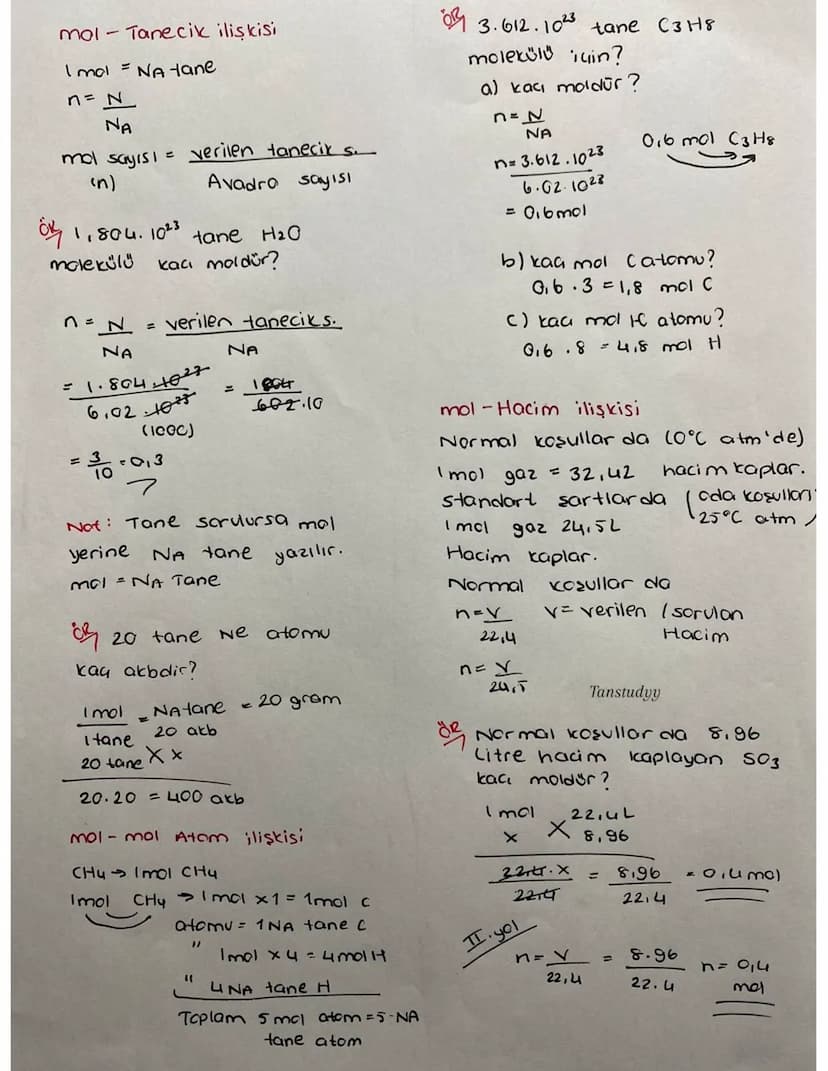 mol - Tanecik ilişkisi
1 mol = NA tane
n = N
NA
mol sayısı = verilen tanecik s.
(n) Avadro sayısı
ÖR 1,804.10²³ tane H2O
molekülü kaç moldür?
n = N = verilen tanecik s.
NA NA
= 1.804.10²³ = 1804
6,02.10²³ 602.10
(1000)
= 3 = 0,3
10
Not: Tane sorulursa mol
yerine NA tane yazılır.
mol = NA Tane
ÖR 20 tane Ne atomu
kaç akbdir?
1mol = NA tane = 20 gram
1 tane 20 akb
20 tane X x
20.20 = 400 akb
mol - mol Atom ilişkisi
CH4 → 1 mol CH4
1mol CH4 → 1mol x 1 = 1mol C
atomu = 1NA tane C
" 1mol x 4 = 4mol H
" 4NA tane H
Toplam 5 mol atom = 5-NA
tane atom
ÖR 3.612.10²³ tane C3H8
molekülü için?
a) kaç moldür?
n = N
NA
0,6 mol C3H8
n = 3.612.10²³
6.02.10²³
= 0,6mol
b) kaç mol C atomu?
0,6 . 3 = 1,8 mol C
c) kaç mol H atomu?
0,6 . 8 = 4,8 mol H
mol - Hacim ilişkisi
Normal koşullar da (0°C atm'de)
1 mol gaz = 32,42 hacim kaplar.
standart şartlarda (oda koşulları
25°C atm)
1 mol gaz 24,5L
Hacim kaplar.
Normal koşullar da
n = V V = verilen / sorulan
22,4 Hacim
n = V
24,5
Tanstudyy
ÖR Normal koşullar da 8,96
Litre hacim kaplayan SO3
kaç moldür?
1 mol 22,4L
x X 8,96
22,4.x = 8,96 = 0,4mol
22,4 22,4
II.yol
n = V = 8.96 n = 0,4
22,4 22.4 mol